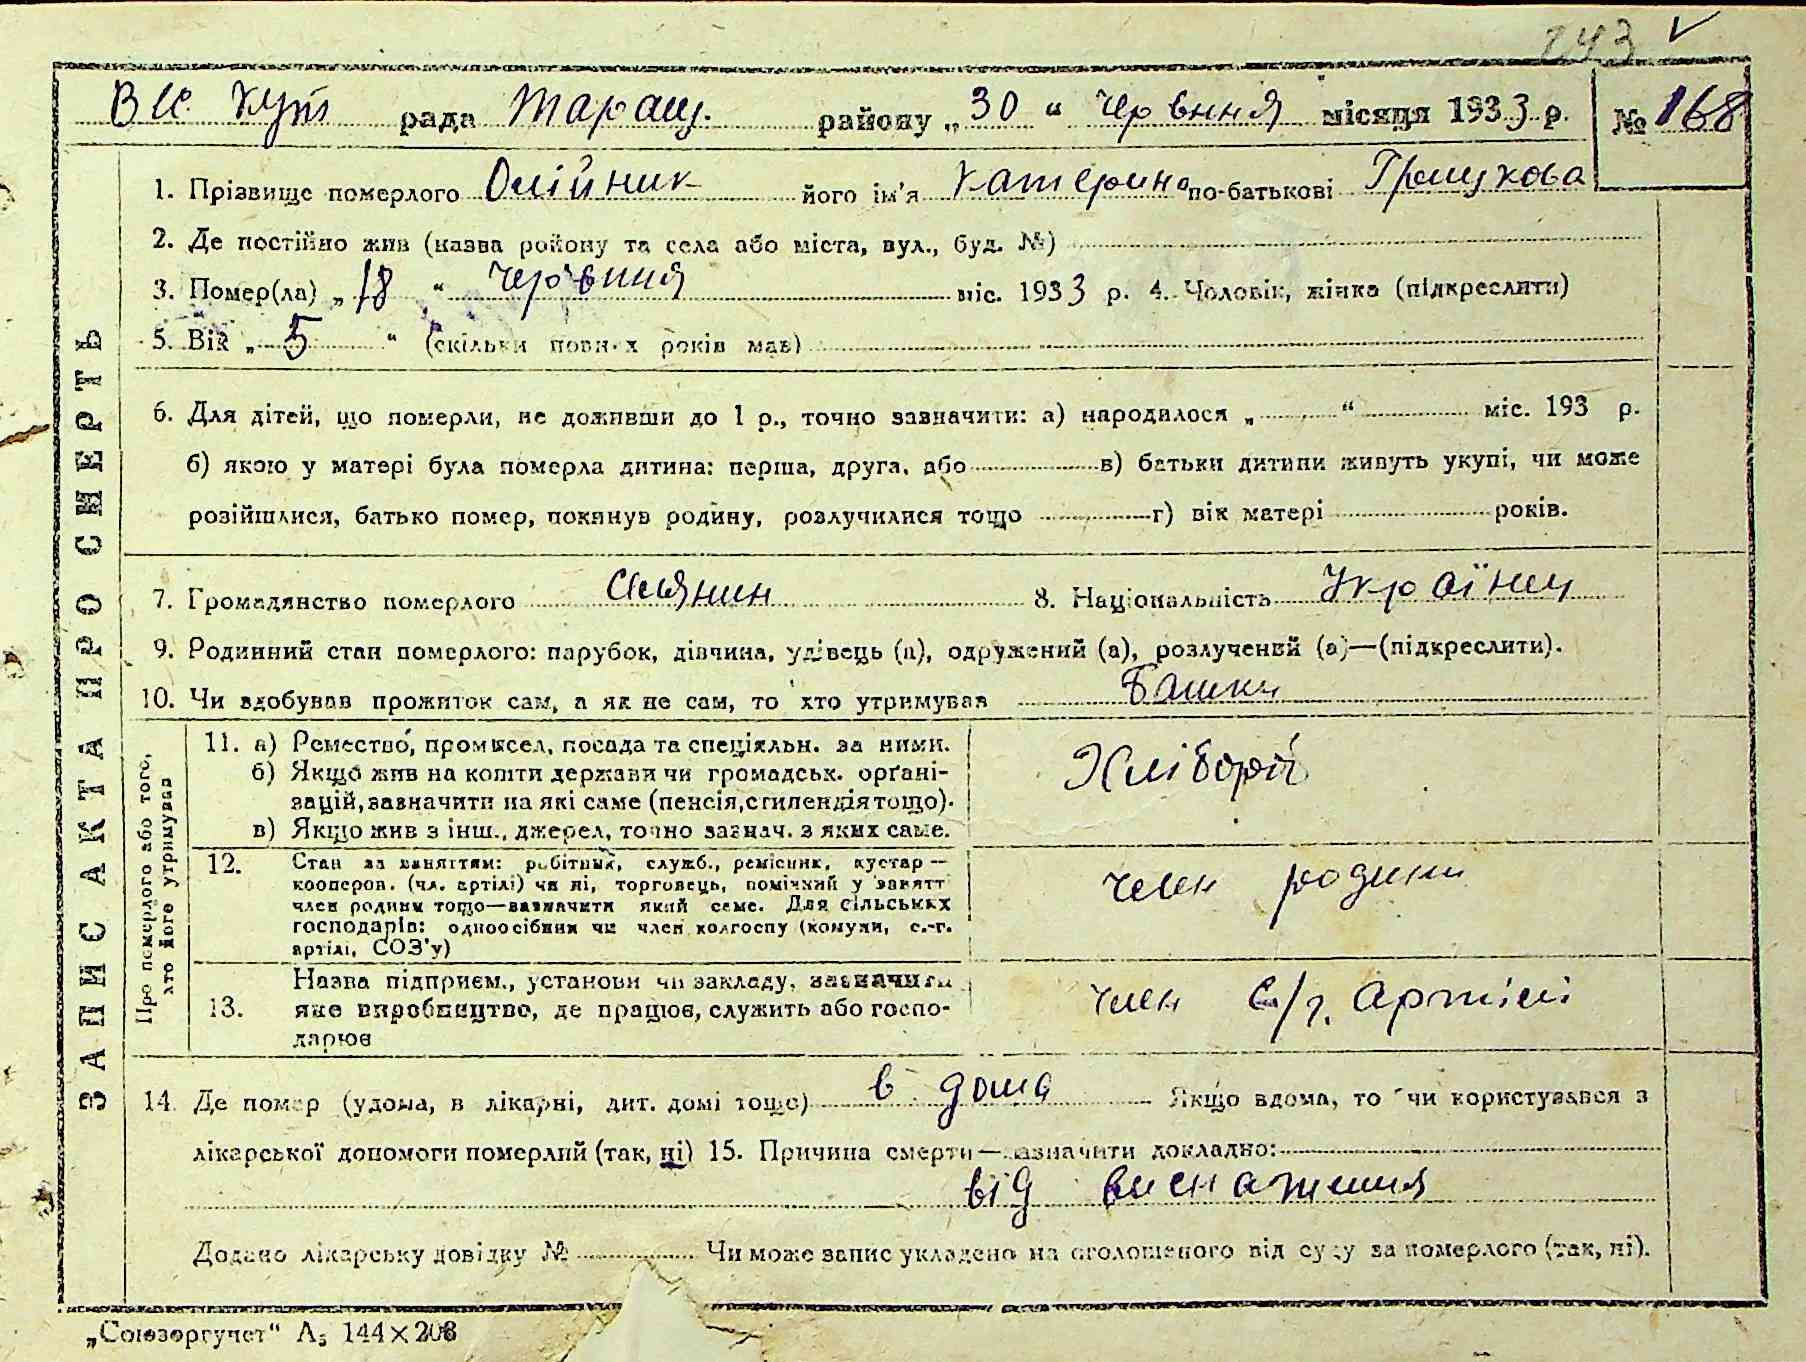 243 ✓
рада Таращ. району „30 “ червння місяця 1933 р. № 168
ЗАПИС АКТА ПРО СМЕРТЬ
1. Прізвище померлого Олійник його ім'я Катерина по-батькові
2. Де постійно жив (назва району та села або міста, вул., буд. №)
3. Помер(ла) „ 18 “ червння міс. 1933 р. 4. Чоловік, жінка (підкреслити)
5. Вік „ 5 “ (скільки повних років мав)
6. Для дітей, що померли, не доживши до 1 р., точно зазначити: а) народилося „ “ міс. 193 р.
б) якою у матері була померла дитина: перша, друга, або в) батьки дитини живуть укупі, чи може
розійшлися, батько помер, покинув родину, розлучилися тощо г) вік матері років.
7. Громадянство померлого Силянин 8. Національність Українц
9. Родинний стан померлого: парубок, дівчина, удівець (а), одружений (а), розлучений (а)—(підкреслити).
10. Чи здобував прожиток сам, а як не сам, то хто утримував Батьки
Про померлого або того,
хто його утримував
11. а) Ремество, промисел, посада та спеціяльн. за ними.
б) Якщо жив на кошти держави чи громадськ. органі-
зацій, зазначити на які саме (пенсія, стипендія тощо).
в) Якщо жив з інш., джерел, точно зазнач. з яких саме.
Хлібороб
12. Стан за заняттям: робітник, служб., ремісник, кустар —
кооперов. (чл. артілі) чи ні, торговець, помічний у занятт
член родини тощо—зазначити який саме. Для сільських
господарів: одноосібник чи член колгоспу (комуни, с.-г.
артілі, СОЗ'у)
член родини
13. Назва підприєм., установи чи закладу, зазначити
яке виробництво, де працює, служить або госпо-
дарює
член с/г. артілі
14 Де помер (удома, в лікарні, дит. домі тощо) в дома Якщо вдома, то чи користувався з
лікарської допомоги померлий (так, ні) 15. Причина смерти—зазначити докладно:
від виснаження
Додано лікарську довідку № Чи може запис укладено на оголошеного від суду за померлого (так, ні).
„Союзоргучет“ А5 144×208